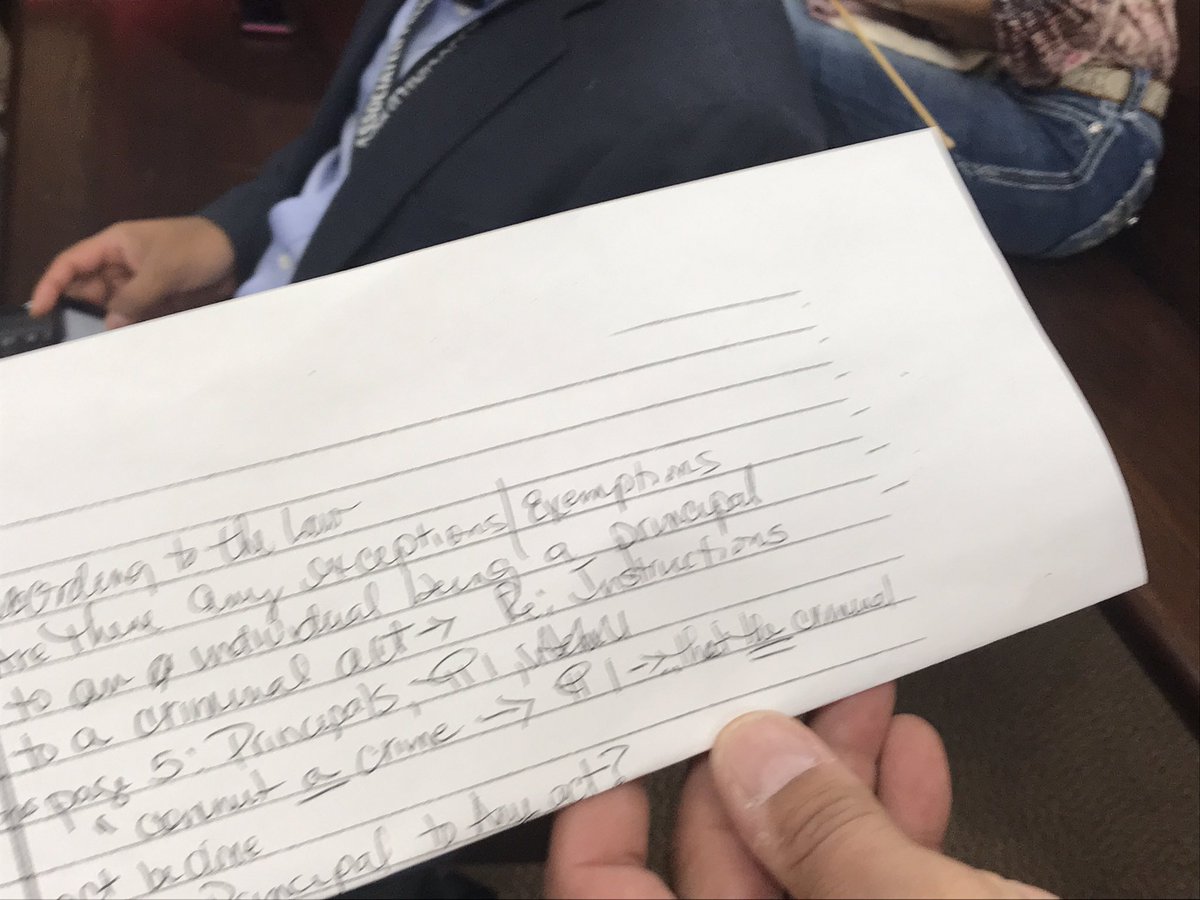 according to the Law
Are there any exceptions/Exemptions
to an individual being a principal
to a criminal act → Re: Instructions
page 5: Principals, #1,
"commit a crime → #1 → that the criminal
act be done
Principal to any act?